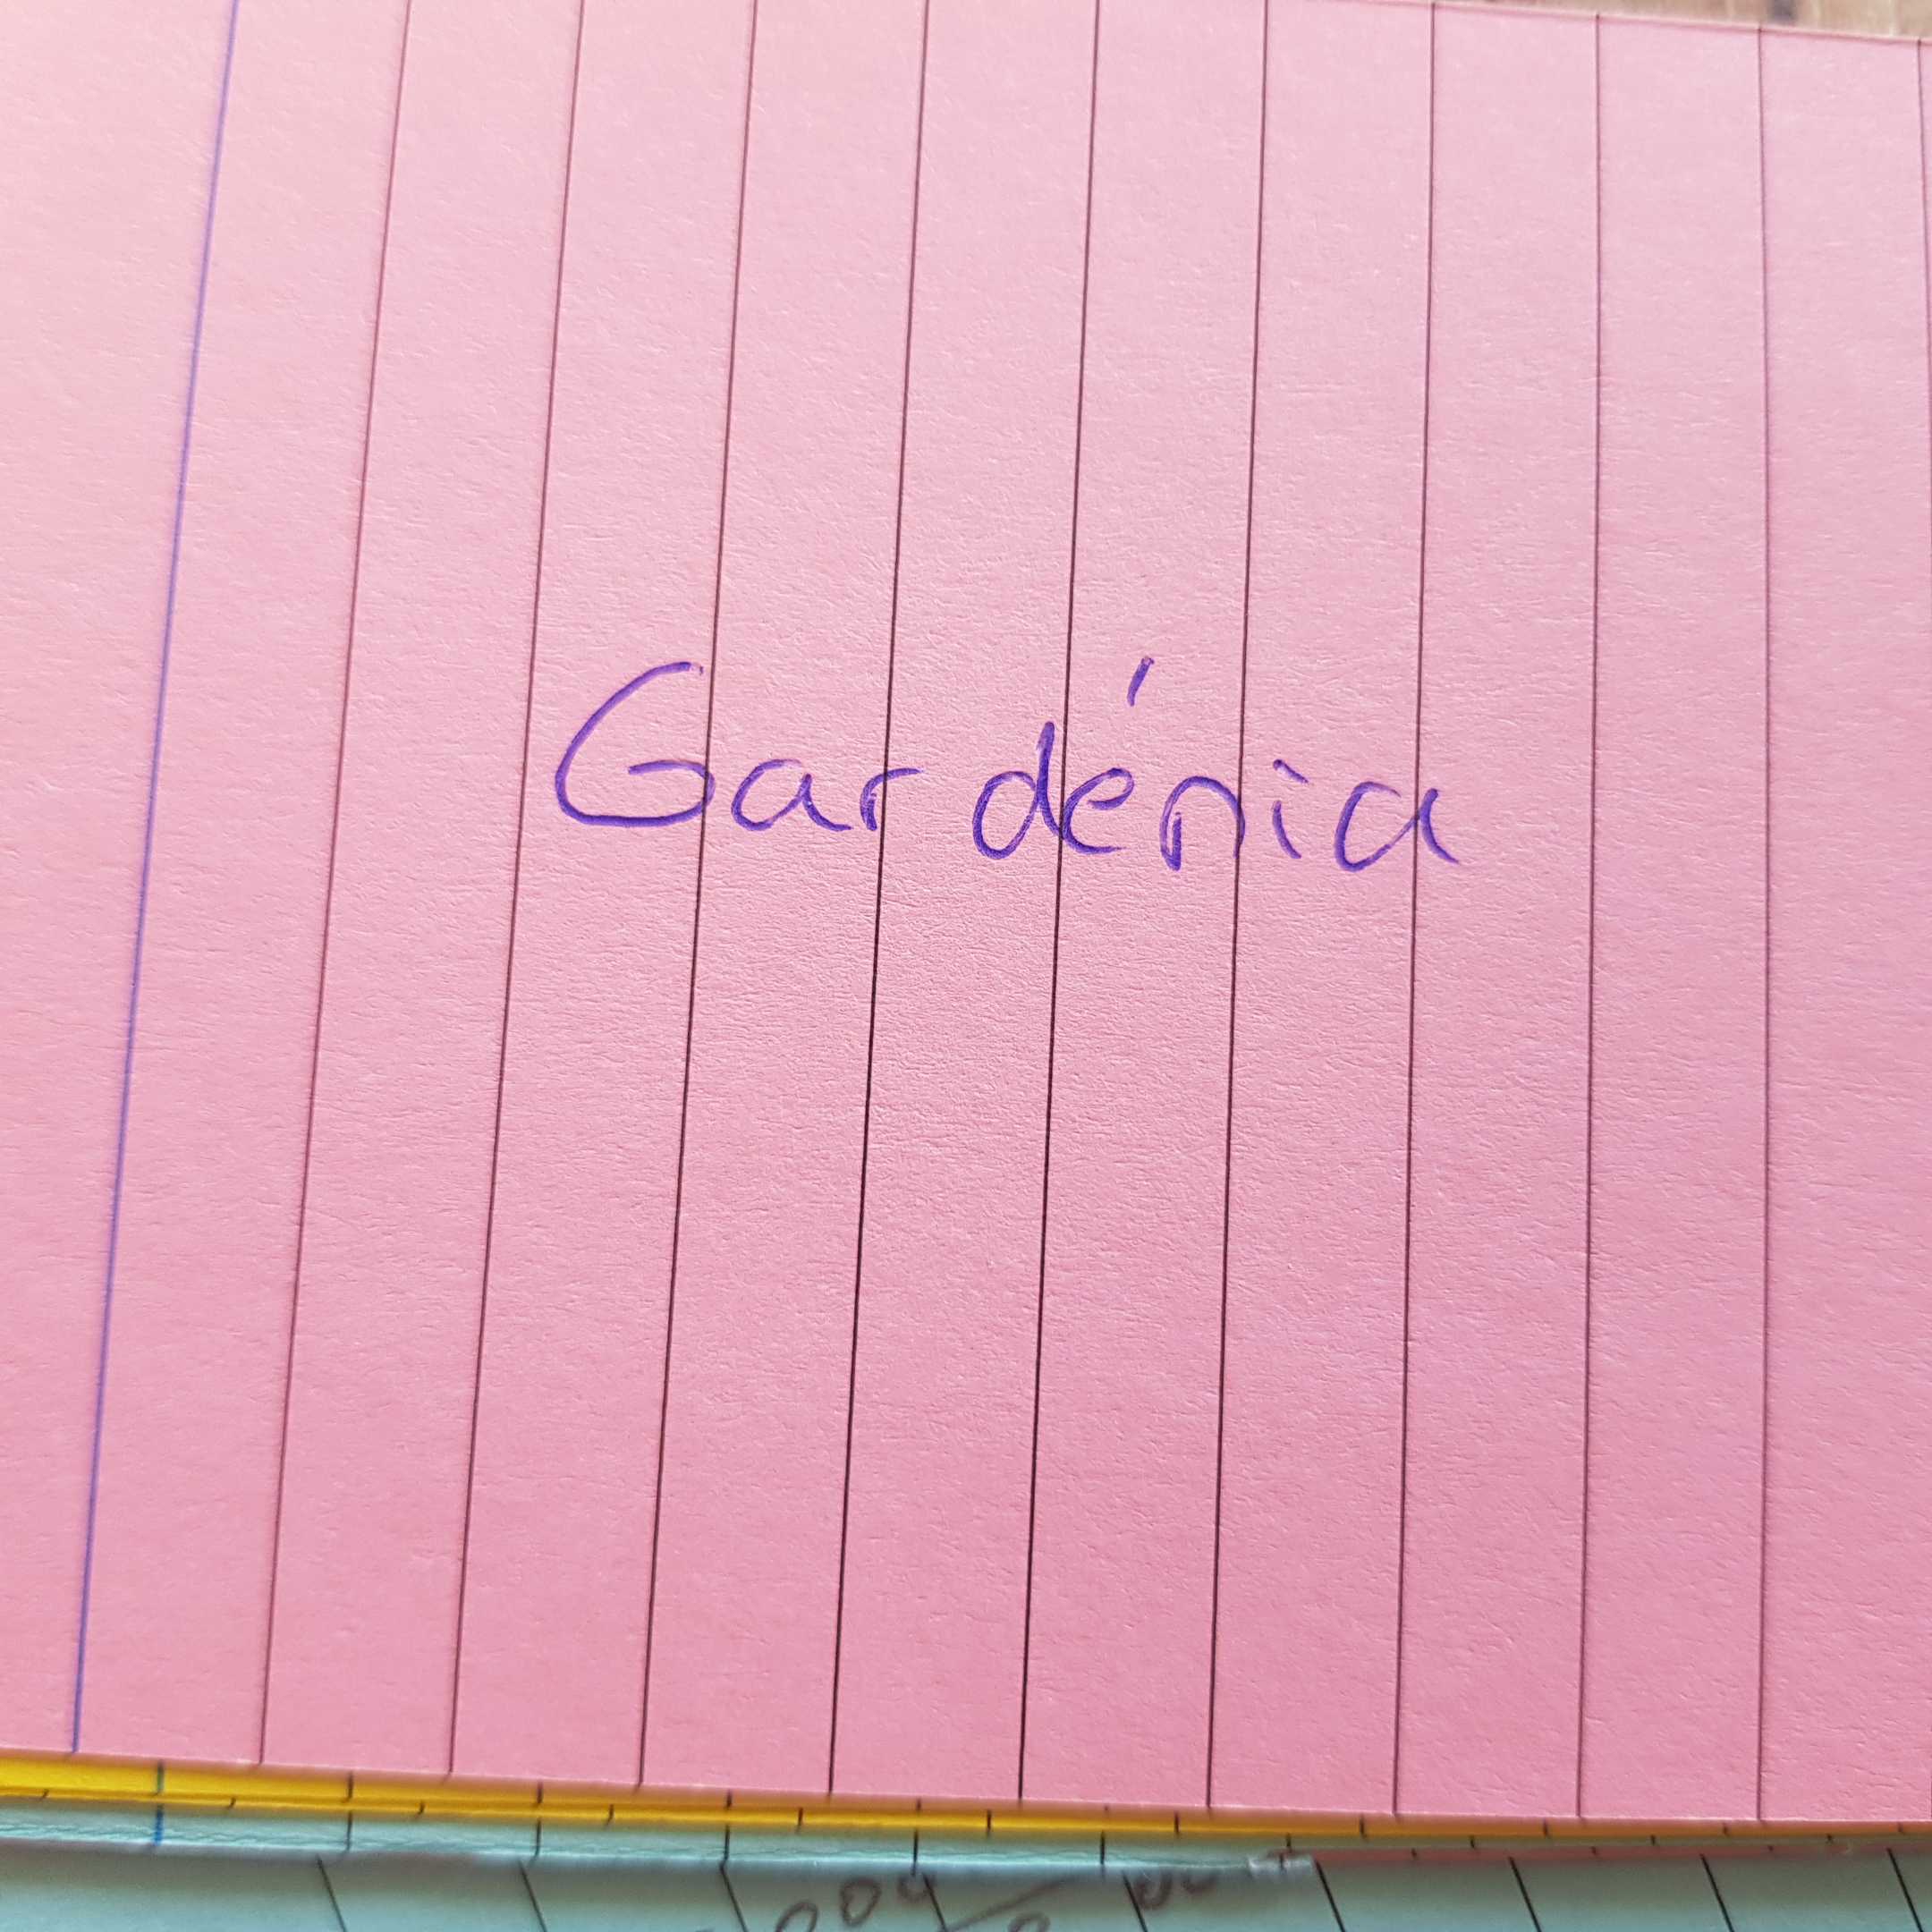 Gardénia